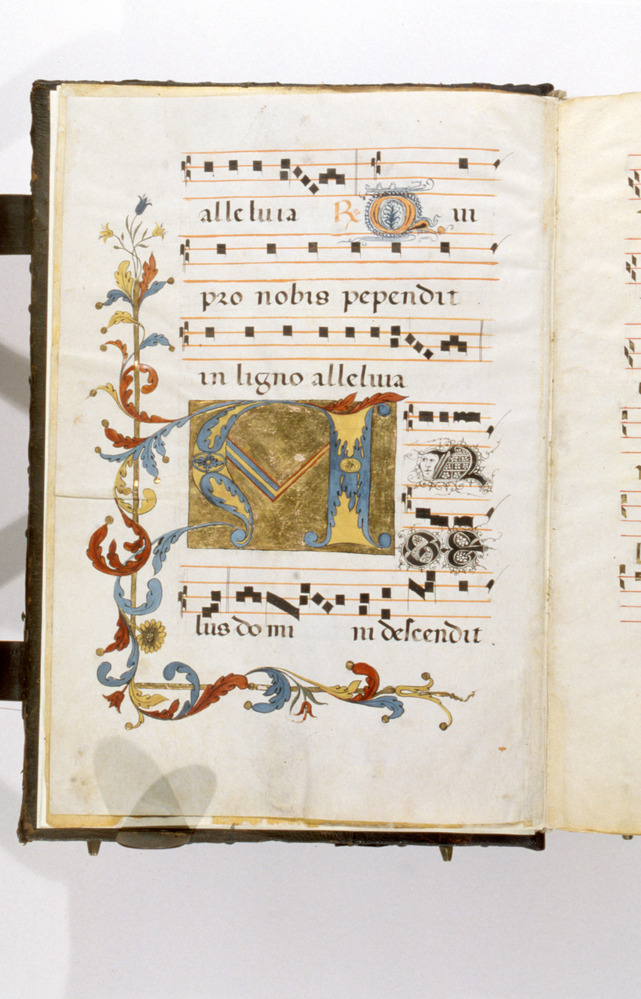 alleluia Re Q ui
pro nobis pependit
in ligno alleluia
A N
GE
lus do mi ni descendit.